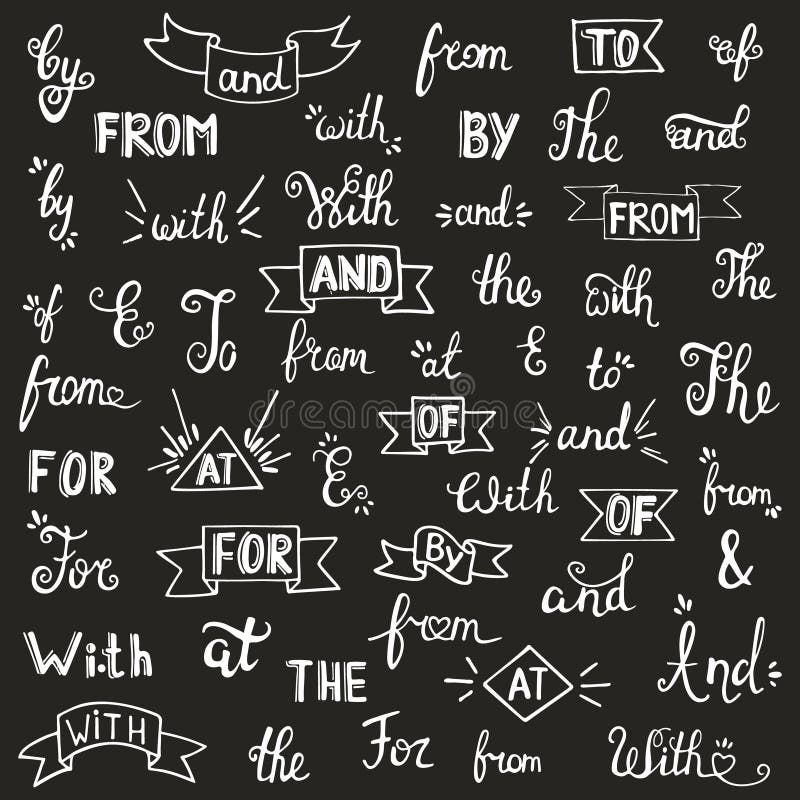 by and from TO of
FROM with BY The and
by with With and FROM
AND the with The
of E To from at E to The
from AT OF and
FOR E With OF from
For FOR By and &
With at THE from AT And
WITH the For from With
dreamstime